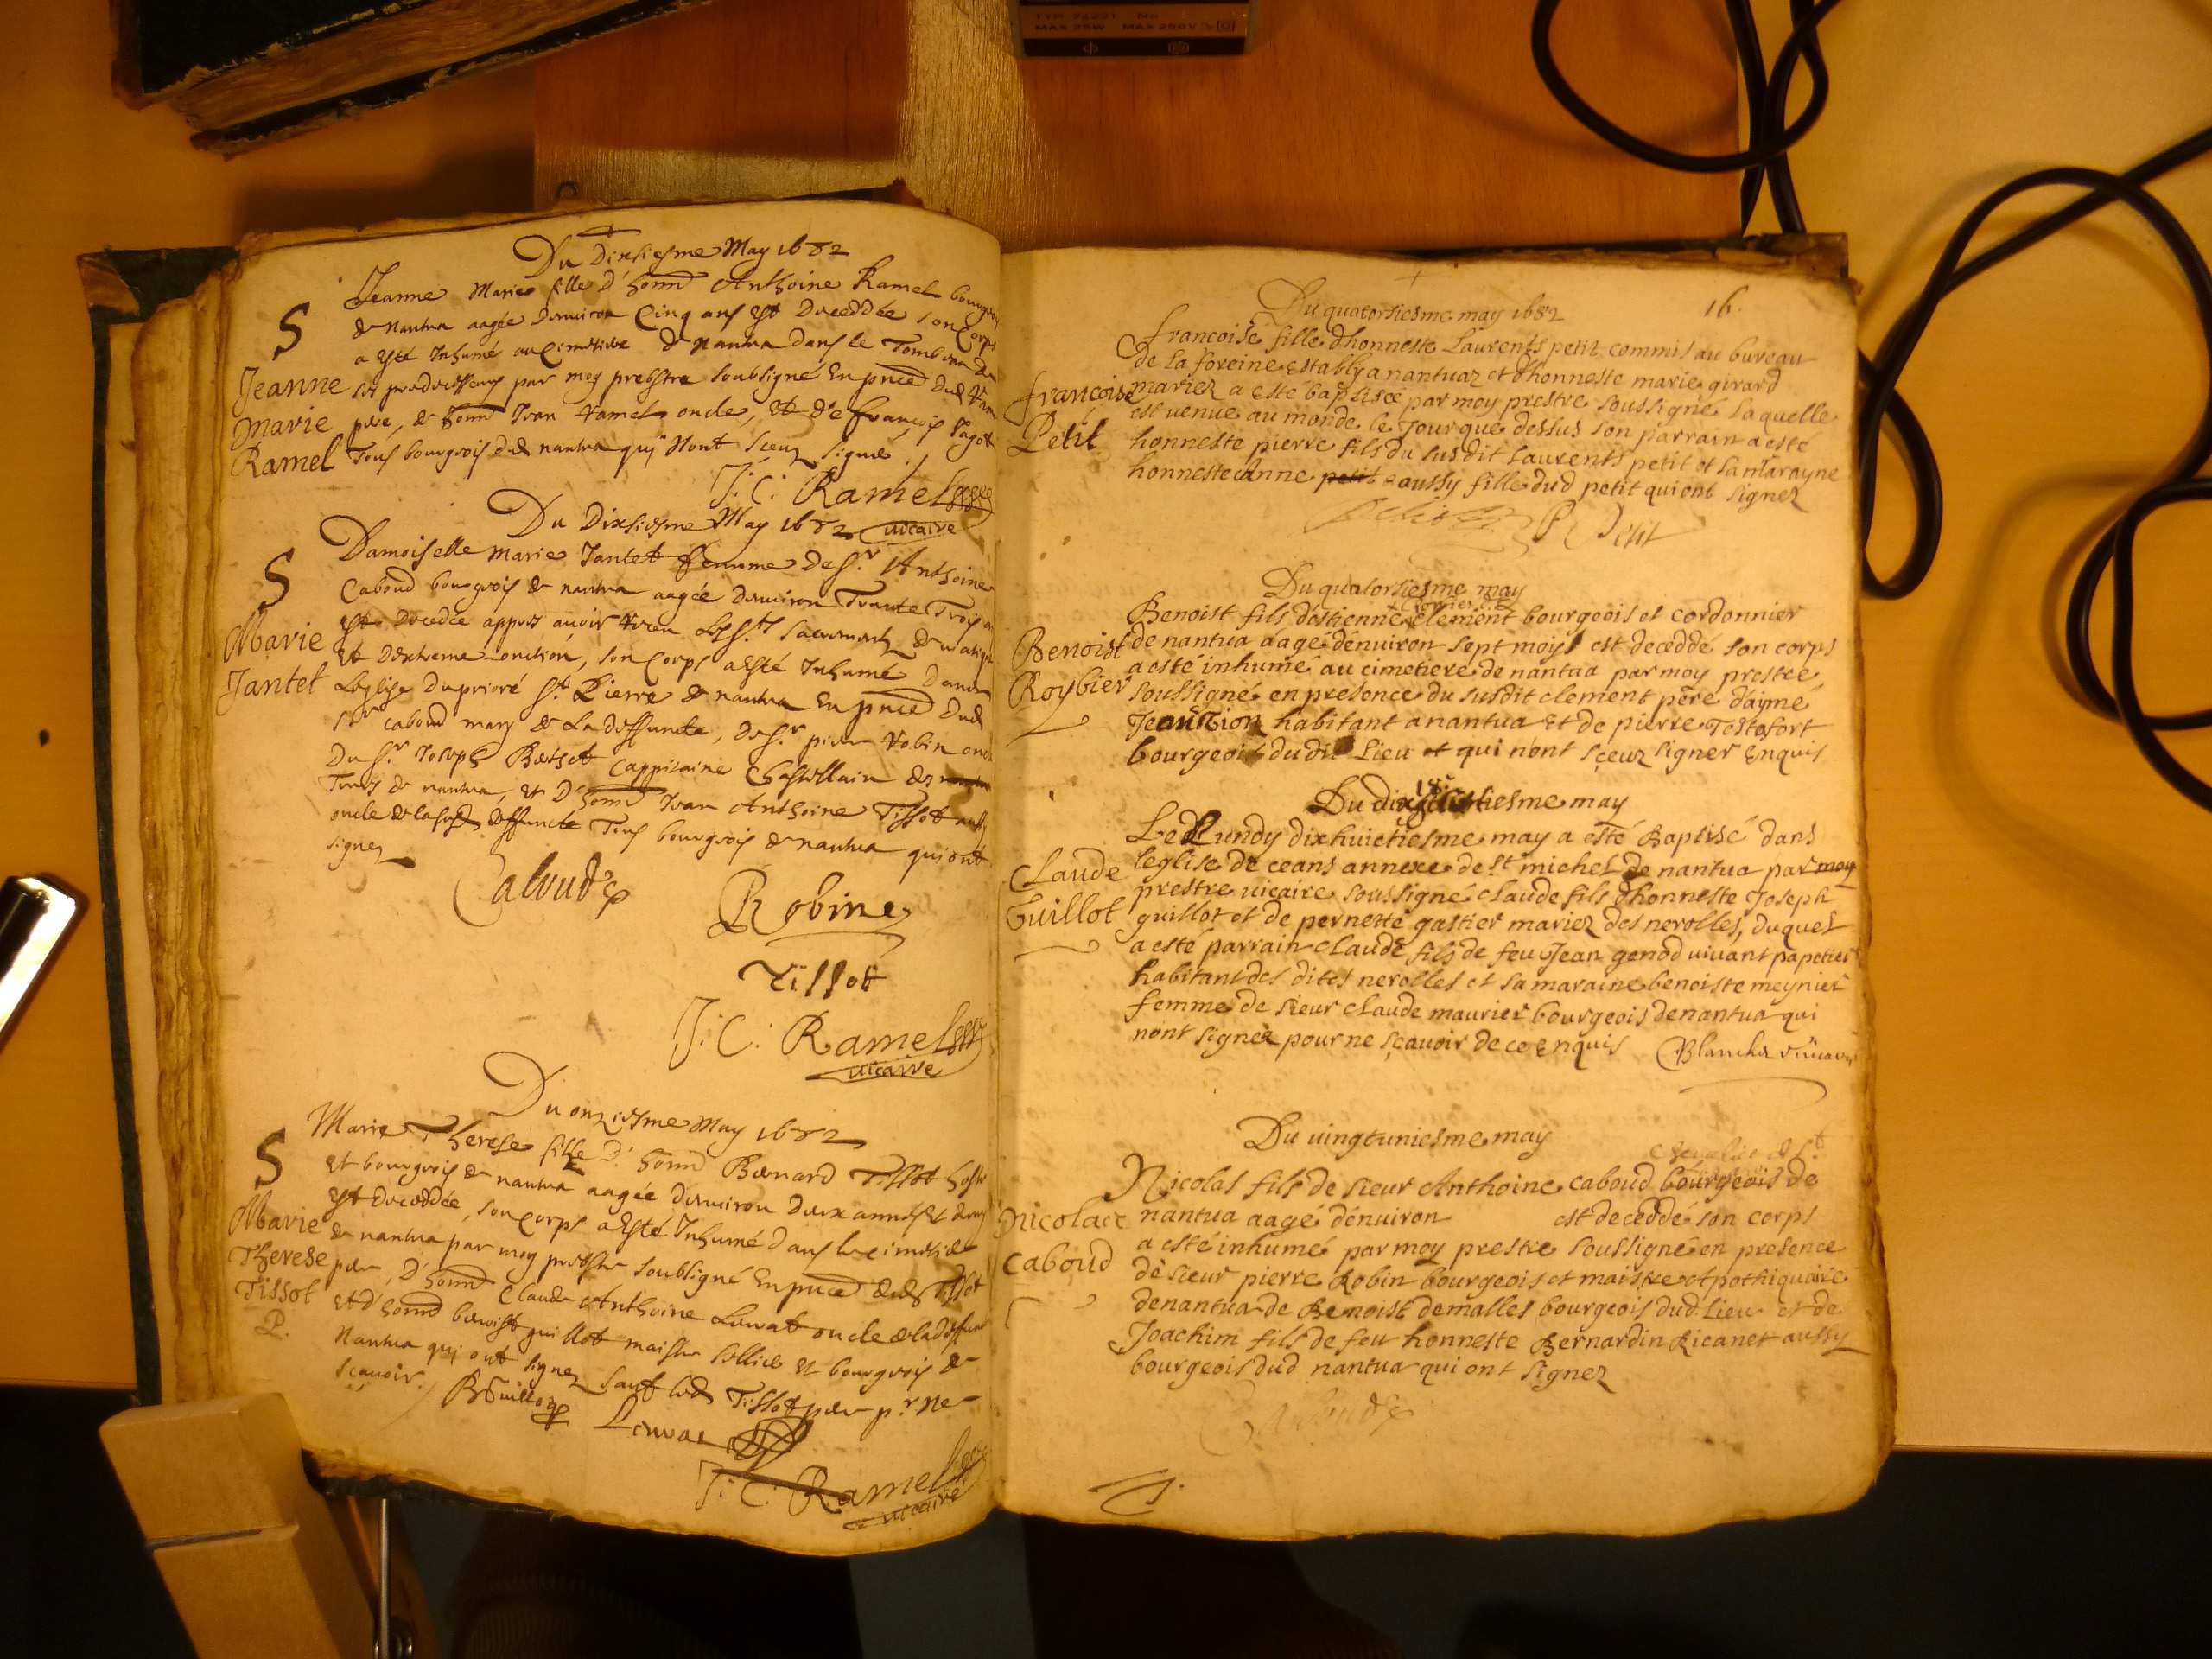 TYP 
MAX 25W MAX 250V
Du Dixsiesme May 1682
S
Jeanne
Marie
Ramel
Jeanne Marie fille d'honnê Anthoine Ramel bourgeois
de Nantua aagée denuiron Cinq ans est Deceddée son Corps
a esté Inhumé au Cimetiere de Nantua dans le Tombeau de
ses predecesseurs par moy prebstre soubsigné En pnce dud Ramel
pere, de honnê Jean Ramel oncle, et de françois Pagot
Tous bourgeois dud nantua quy Nont sceuz signer
J: C: Ramel
vicaire
Du Dixsiesme May 1682
S
Marie
Jantet
Damoiselle Marie Jantet femme de Sr. Anthoine
Caboud bourgeois de nantua aagée denuiron Trante Trois ans
est Decedée appres auoir Receu Les Sts sacrements de uiatique
et Dextreme-onction, son Corps a Esté Inhumé Dans
Leglise du prioré St. Pierre de nantua En pnce dud
Sr caboud mary de La deffuncte, de Sr. pierre Robin oncle
Du Sr. Joseph Cappitaine Chastellain de
Tous de nantua, et D'honnê Jean Anthoine Tissot aussy
oncle de lasusd deffuncte Tous bourgeois de nantua qui ont
signez
Caboud
Robin
Tissot
J: C: Ramel
vicaire
Du onziesme May 1682
S
Marie
Therese
Tissot
P.
Marie Therese fille D'honnê Bernard Tissot hoste
et bourgeois de nantua aagée denuiron deux années et demy
est deceddée, son Corps a Esté Inhumé dans le cimetiere
de nantua par moy prebstre soubsigné En pnce dud Tissot
pere, D'honnê Claude Anthoine oncle de la deffuncte
et d'honnê benoist guillot maistre sellier et bourgeois de
Nantua qui ont signez sauf led Tissot pere pr. ne
scauoir.
BGuillot
J: C: Ramel
vicaire
16.
Du quatorsiesme may 1682
françoise
Petit
francoise fille dhonneste Laurents petit commis au bureau
de la foreine establÿ a nantuaz et dhonneste marie girard
mariez a esté baptisée par moy prestre soussigné laquelle
est uenue au monde le Jour que dessus son parrain a esté
honneste pierre fils du susdit Laurents petit et sa marayne
honneste anne petit aussy fille dud petit qui ont signez
P Petit
Du quatorsiesme may
Benoist
Roybier
Benoist fils d'estienne clement bourgeois et cordonnier
de nantua aagé dénuiron sept moys est deceddé son corps
a esté inhumé au cimetiere de nantua par moy prestre
soussigné en presence du susdit clement père d'aymé
Jean habitant a nantua et de pierre Testefort
bourgeois dudit Lieu et qui n'ont sceuz signer enquis
18e
Du
Claude
Guillot
Le Lundy dixhuictiesme may a esté Baptisé dans
leglise de ceans annexe de St michel de nantua par moy
prestre uicaire soussigné claude fils dhonneste Joseph
guillot et de pernette gastier mariez des nerolles, duquel
a esté parrain claude fils de feu Jean genod uiuant papetier
habitant des dites nerolles et sa maraine benoiste meynier
femme de sieur claude maurier bourgeois de nantua qui
nont signez pour ne sçauoir de ce enquis
Blanchet
Du uingtuniesme may
Nicolas
Caboud
Nicolas fils de sieur Anthoine caboud bourgeois de
nantua aagé dénuiron est deceddé son corps
a esté inhumé par moy prestre soussigné en presence
de sieur pierre Robin bourgeois et maistre apothiquaire
de nantua de Benoist demalles bourgeois dud Lieu et de
Joachim fils de feu honneste Bernardin Ricanet aussy
bourgeois dud nantua qui ont signez
Caboud